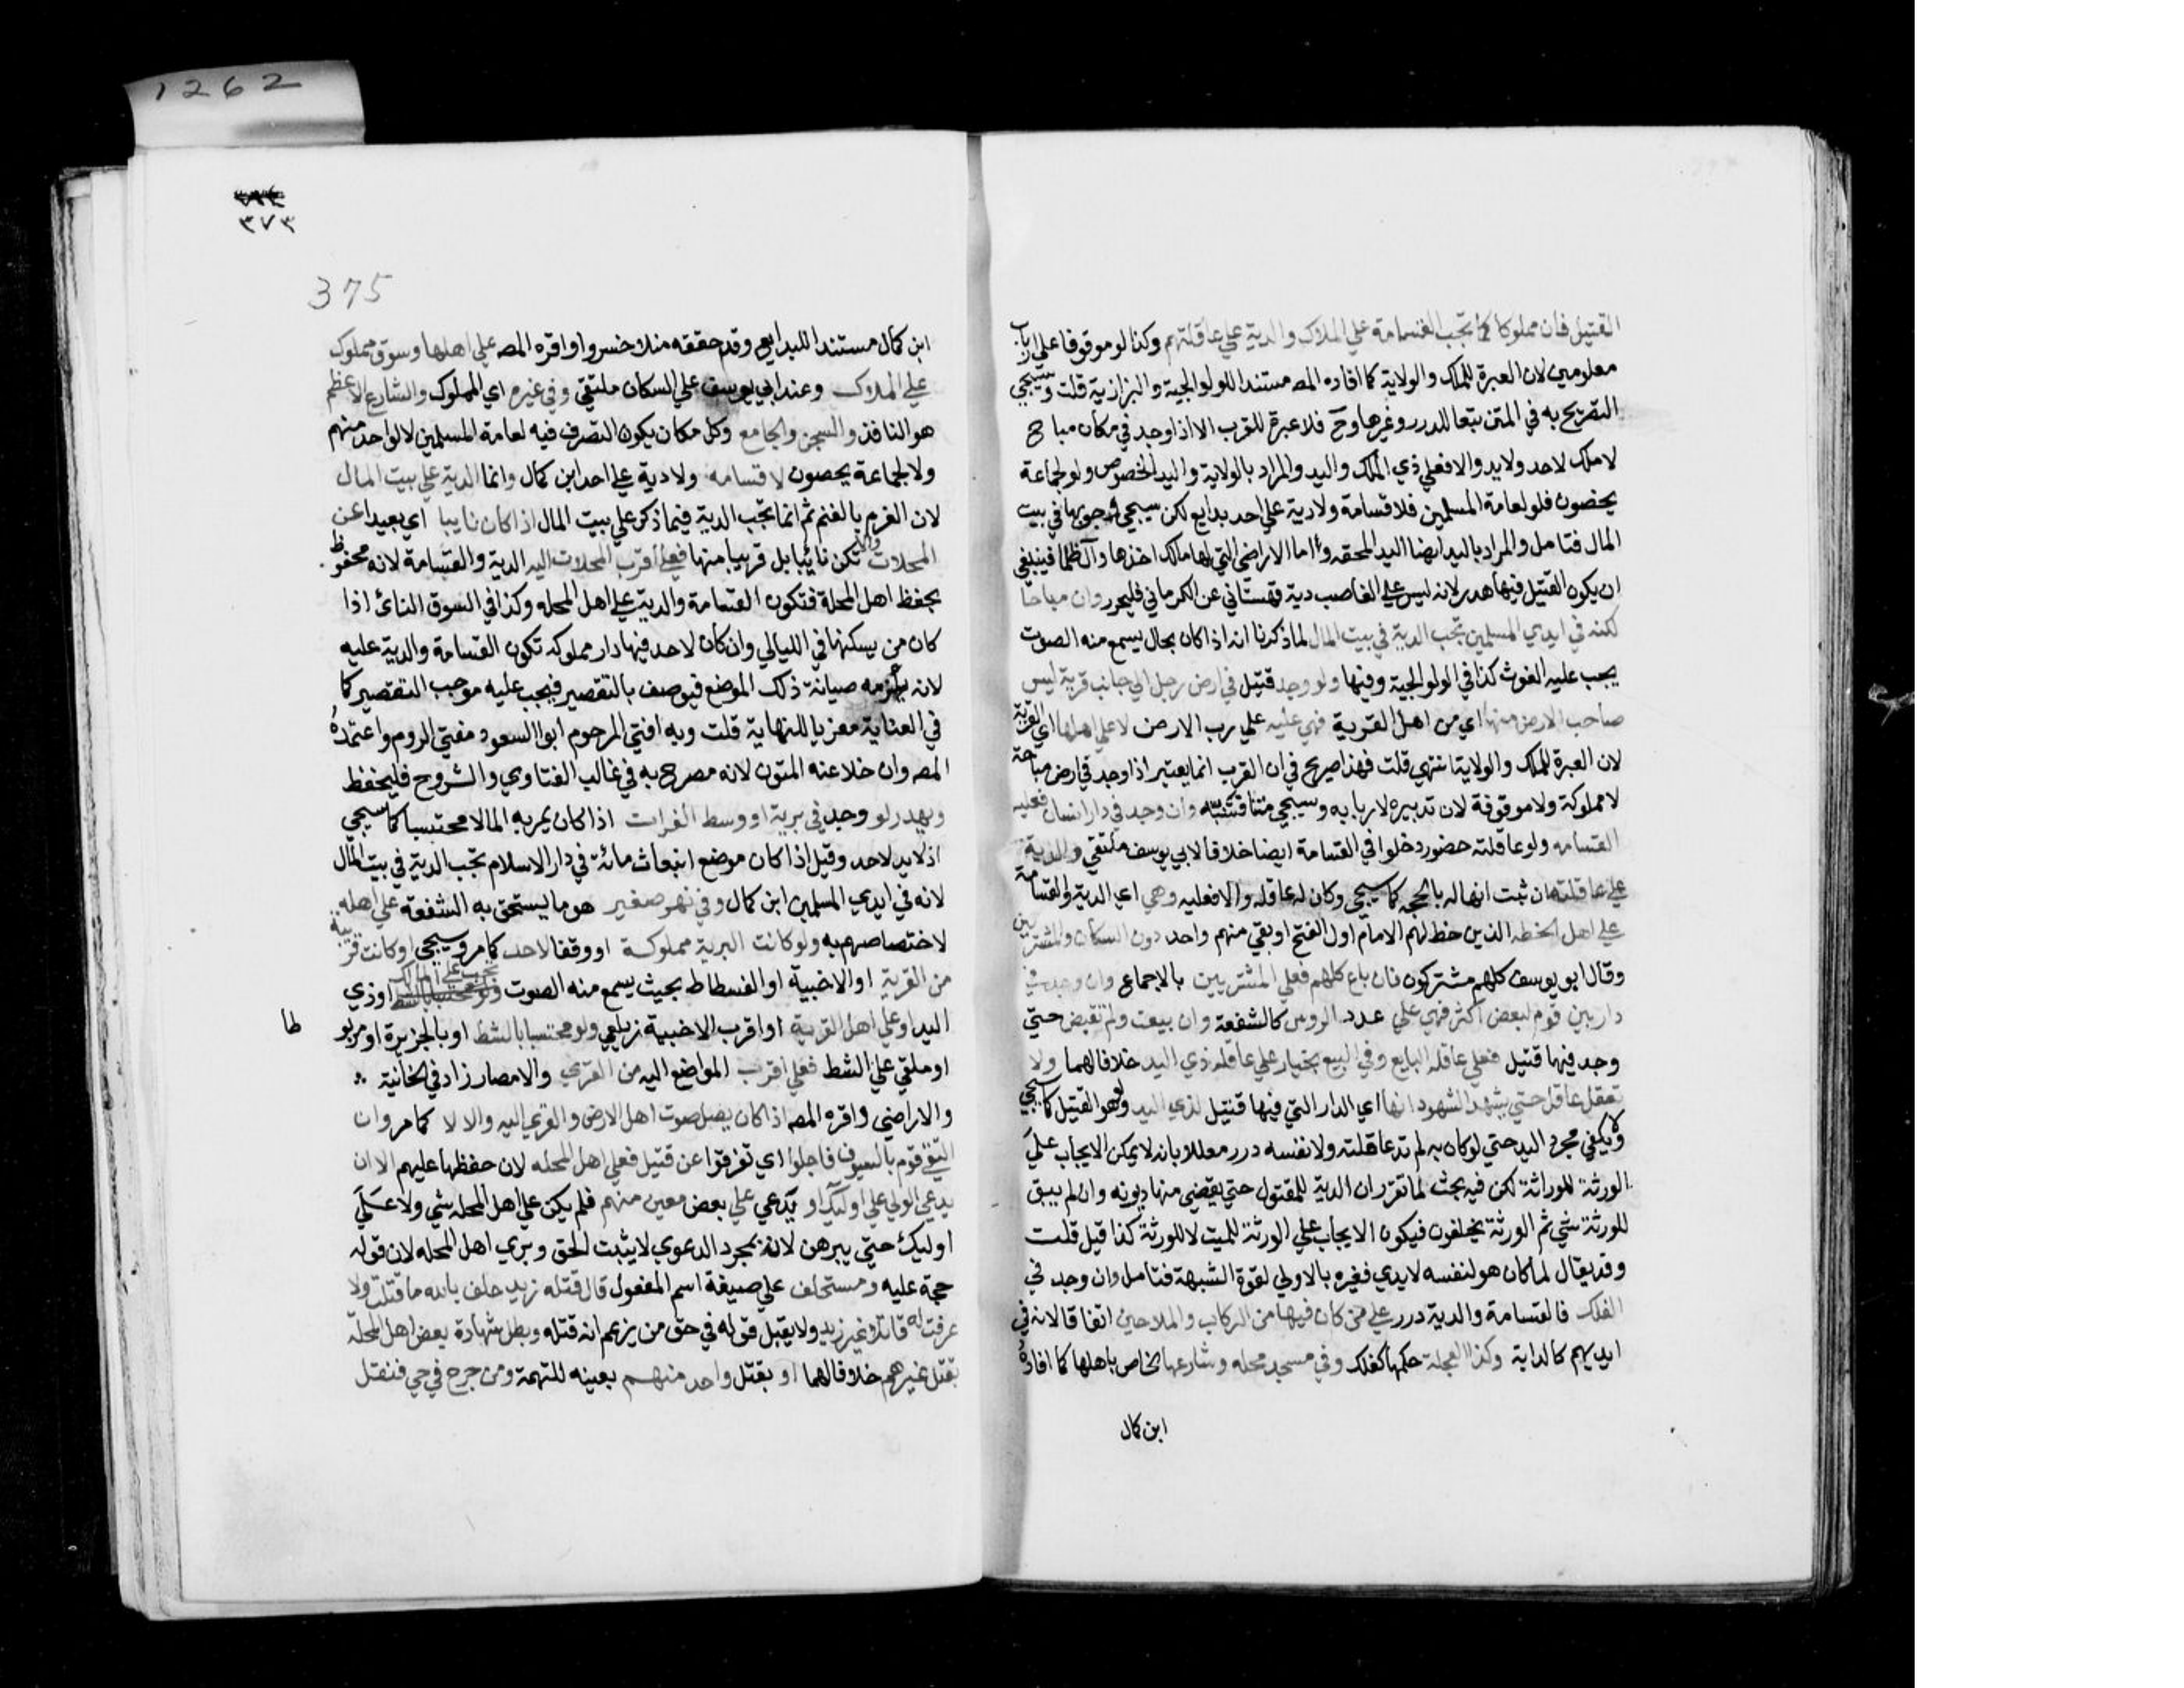 القتيل فان مملوكا تجب القسامة علي الملاك والدية علي عاقلتهم وكذا لو موقوفا علي ارباب
معلومين لان العبرة للملك والولاية كما افاده المصه مستندا للولوالجية والبزازية قلت وسيجي
التصريح به في المتن تبعا للدرر وغيرها وح فلا عبرة للقرب الا اذا وجد في مكان مباح
لا ملك لاحد ولا يد والا فعلي ذي الملك واليد والمراد بالولاية واليد الخصوص ولو لجماعة
يحصون فلو لعامة المسلمين فلا قسامة ولا دية علي احد بدايع لكن سيجي وجوبها في بيت
المال فتامل والمراد باليد ايضا اليد المحقه واما الاراضي التي لها مالك اخذها وال ظلما فينبغي
ان يكون القتيل فيها هدر لانه ليس علي الغاصب دية قهستاني عن الكرماني فليحرر وان مباحا
لكنه في ايدي المسلمين تجب الدية في بيت المال لما ذكرنا انه اذا كان بحال يسمع منه الصوت
يجب عليه الغوث كذا في الولوالجية وفيها ولو وجد قتيل في ارض رجل الي جانب قرية ليس
صاحب الارض منها اي من اهل القرية فهي عليه علي رب الارض لا علي اهلها اي القرية
لان العبرة للملك والولاية انتهي قلت فهذا صريح في ان القرب انما يعتبر اذا وجد في ارض مباحة
لا مملوكة ولا موقوفة لان تدبيره لاربابه وسيجي متنا فتنبه وان وجد في دار انسان فعليه
القسامه ولو عاقلته حضور دخلوا في القسامة ايضا خلافا لابي يوسف ملتقي والدية
علي عاقلته ان ثبت انها له بالحجه كما سيجي وكان له عاقله والا فعليه وهي اي الدية والقسامة
علي اهل الخطه الذين خط لهم الامام اول الفتح او بقي منهم واحد دون السكان والمشترين
وقال ابو يوسف كلهم مشتركون فان باع كلهم فعلي المشتريين بالاجماع وان وجد في
دار بين قوم لبعض اكثر فهي علي عدد الروس كالشفعة وان بيعت ولم تقبض حتي
وجد فيها قتيل فعلي عاقله البايع وفي البيع بخيار علي عاقله ذي اليد خلافا لهما ولا
تعقل عاقله حتي يشهد الشهود انها اي الدار التي فيها قتيل لذي اليد ولو هو القتيل كما سيجي
ولا يكفي مجرد اليد حتي لو كان به لم تدعاقلته ولا نفسه درر معللا بانه لا يمكن الايجاب علي
الورثة للوراثة لكن فيه بحث لما تقرر ان الدية للمقتول حتي يقضي منها ديونه وان لم يبق
للورثة شي ثم الورثة يخلفون فيكون الايجاب علي الورثة للميت لا للورثة كذا قيل قلت
وقد يقال لما كان هو لنفسه لا يدي فغيره بالاولي لقوة الشبهة فتامل وان وجد في
الفلك فالقسامة والدية درر علي من كان فيها من الركاب والملاحين اتفاقا لانه في
ايديهم كالدابة وكذا العجلة حكمها كفلك وفي مسجد محله وشارعها الخاص باهلها كما افاده
ابن كمال
٣٧٣
375
1262
ابن كمال مستندا للبدايع وقد حققه منلا خسرو واقره المصه علي اهلها وسوق مملوك
علي الملاك وعند ابي يوسف علي السكان ملتقي وفي غيره اي المملوك والشارع الاعظم
هو النافذ والسجن والجامع وكل مكان يكون التصرف فيه لعامة المسلمين لا لواحد منهم
ولا لجماعة يحصون لا قسامه ولا دية علي احد ابن كمال وانما الدية علي بيت المال
لان الغرم بالغنم ثم انما تجب الدية فيما ذكر علي بيت المال اذا كان نايبا اي بعيدا عن
المحلات والا تكن نائيا بل قريبا منها فعلي اقرب المحلات اليه الدية والقسامة لانه محفوظ
بحفظ اهل المحلة فتكون القسامة والدية علي اهل المحله وكذا في السوق النائ اذا
كان من يسكنها في الليالي وان كان لاحد فيها دار مملوكه تكون القسامة والدية عليه
لانه يلزمه صيانة ذلك الموضع فيوصف بالتقصير فيجب عليه موجب التقصير كما
في العناية معزيا للنهاية قلت وبه افتي المرحوم ابوا السعود مفتي الروم واعتمده
المصه وان خلا عنه المتون لانه مصرح به في غالب الفتاوي والشروح فليحفظ
ويهدر لو وجد في برية او وسط الفرات اذا كان يمر به الما لا محتبسا كما سيجي
اذ لا يد لاحد وقيل اذا كان موضع انبعاث مائه في دار الاسلام تجب الدية في بيت المال
لانه في ايدي المسلمين ابن كمال وفي نهر صغير هو ما يستحق به الشفعة علي اهله
لاختصاصهم به ولو كانت البرية مملوكة او وقفا لاحد كما مر وسيجي او كانت قريبة
من القرية او الاخبية او الفسطاط بحيث يسمع منه الصوت تجب علي المالك او ذي
اليد او علي اهل القرية او اقرب الاخبية زيلعي ولو محتبسا بالشط او بالجزيرة او مربو
طا
او ملقي علي الشط فعلي اقرب المواضع اليه من القري والامصار زاد في الخانية
والاراضي واقره المصه اذا كان يصل صوت اهل الارض والقري اليه والا لا كما مر وان
التقي قوم بالسيوف فاجلوا اي تفرقوا عن قتيل فعلي اهل المحله لان حفظها عليهم الا ان
يدعي الولي علي اوليك او يدعي علي بعض معين منهم فلم يكن علي اهل المحله شي ولا علي
اوليك حتي يبرهن لان بمجرد الدعوي لا يثبت الحق وبري اهل المحله لان قوله
حجة عليه ومستحلف علي صيغة اسم المفعول قال قتله زيد حلف بالله ما قتلت ولا
عرفت له قاتلا غير زيد ولا يقبل قوله في حق من يزعم انه قتله وبطل شهادة بعض اهل المحلة
بقتل غيرهم خلافا لهما او بقتل واحد منهم بعينه للتهمة ومن جرح في حي فنقل